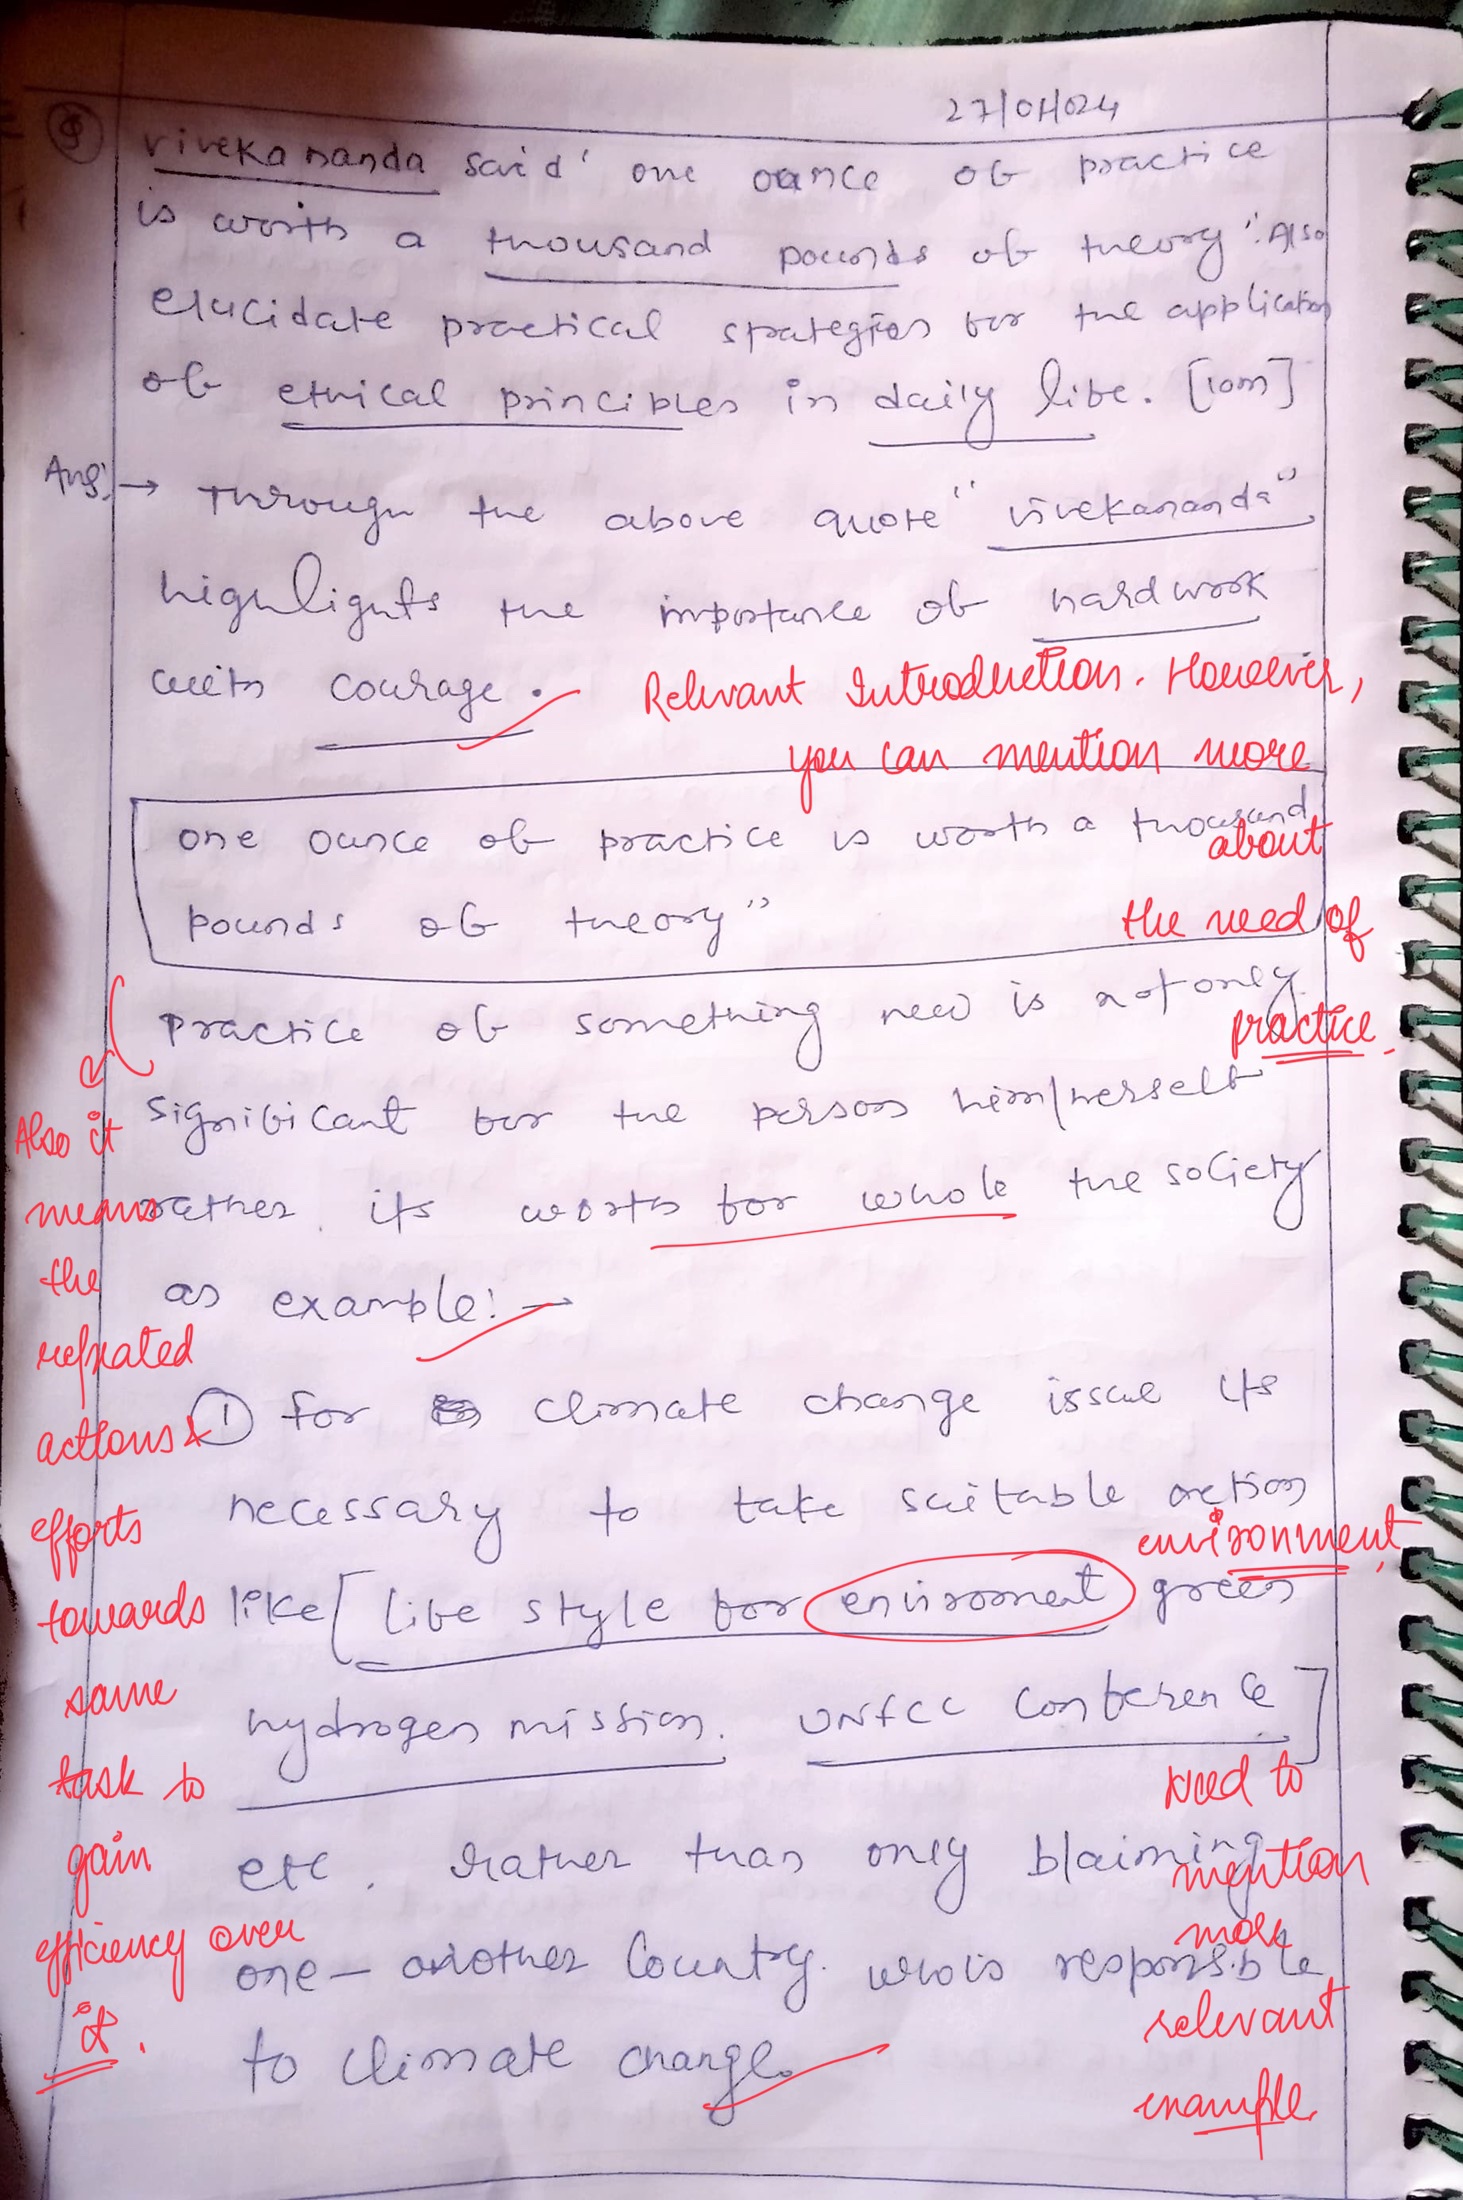 27/01/024
vivekananda said ' one ounce of practice
is worth a thousand pounds of theory". Also
elucidate practical strategies for the application
of ethical principles in daily life. [10m]
Ans: → Through the above quote "vivekananda"
highlights the importance of hardwork
with courage.
Relevant Introduction. However,
you can mention more
about
the need of
practice.
one ounce of practice is worth a thousand
pounds of theory"
Practice of something new is not only
significant for the person him/herself
rather its worth for whole the society
as example: →
Also it
means
the
repeated
actions &
efforts
towards
same
task to
gain
efficiency over
it.
① for climate change issue its
necessary to take suitable action
like [ life style for enviroment green
environment
hydrogen mission. UNFCC Conference ]
etc. rather than only blaiming
one - another Country. who is responsible
to climate change.
Need to
mention
more
relevant
example.